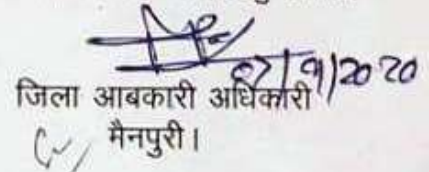 07/9/2020
जिला आबकारी अधिकारी
मैनपुरी।